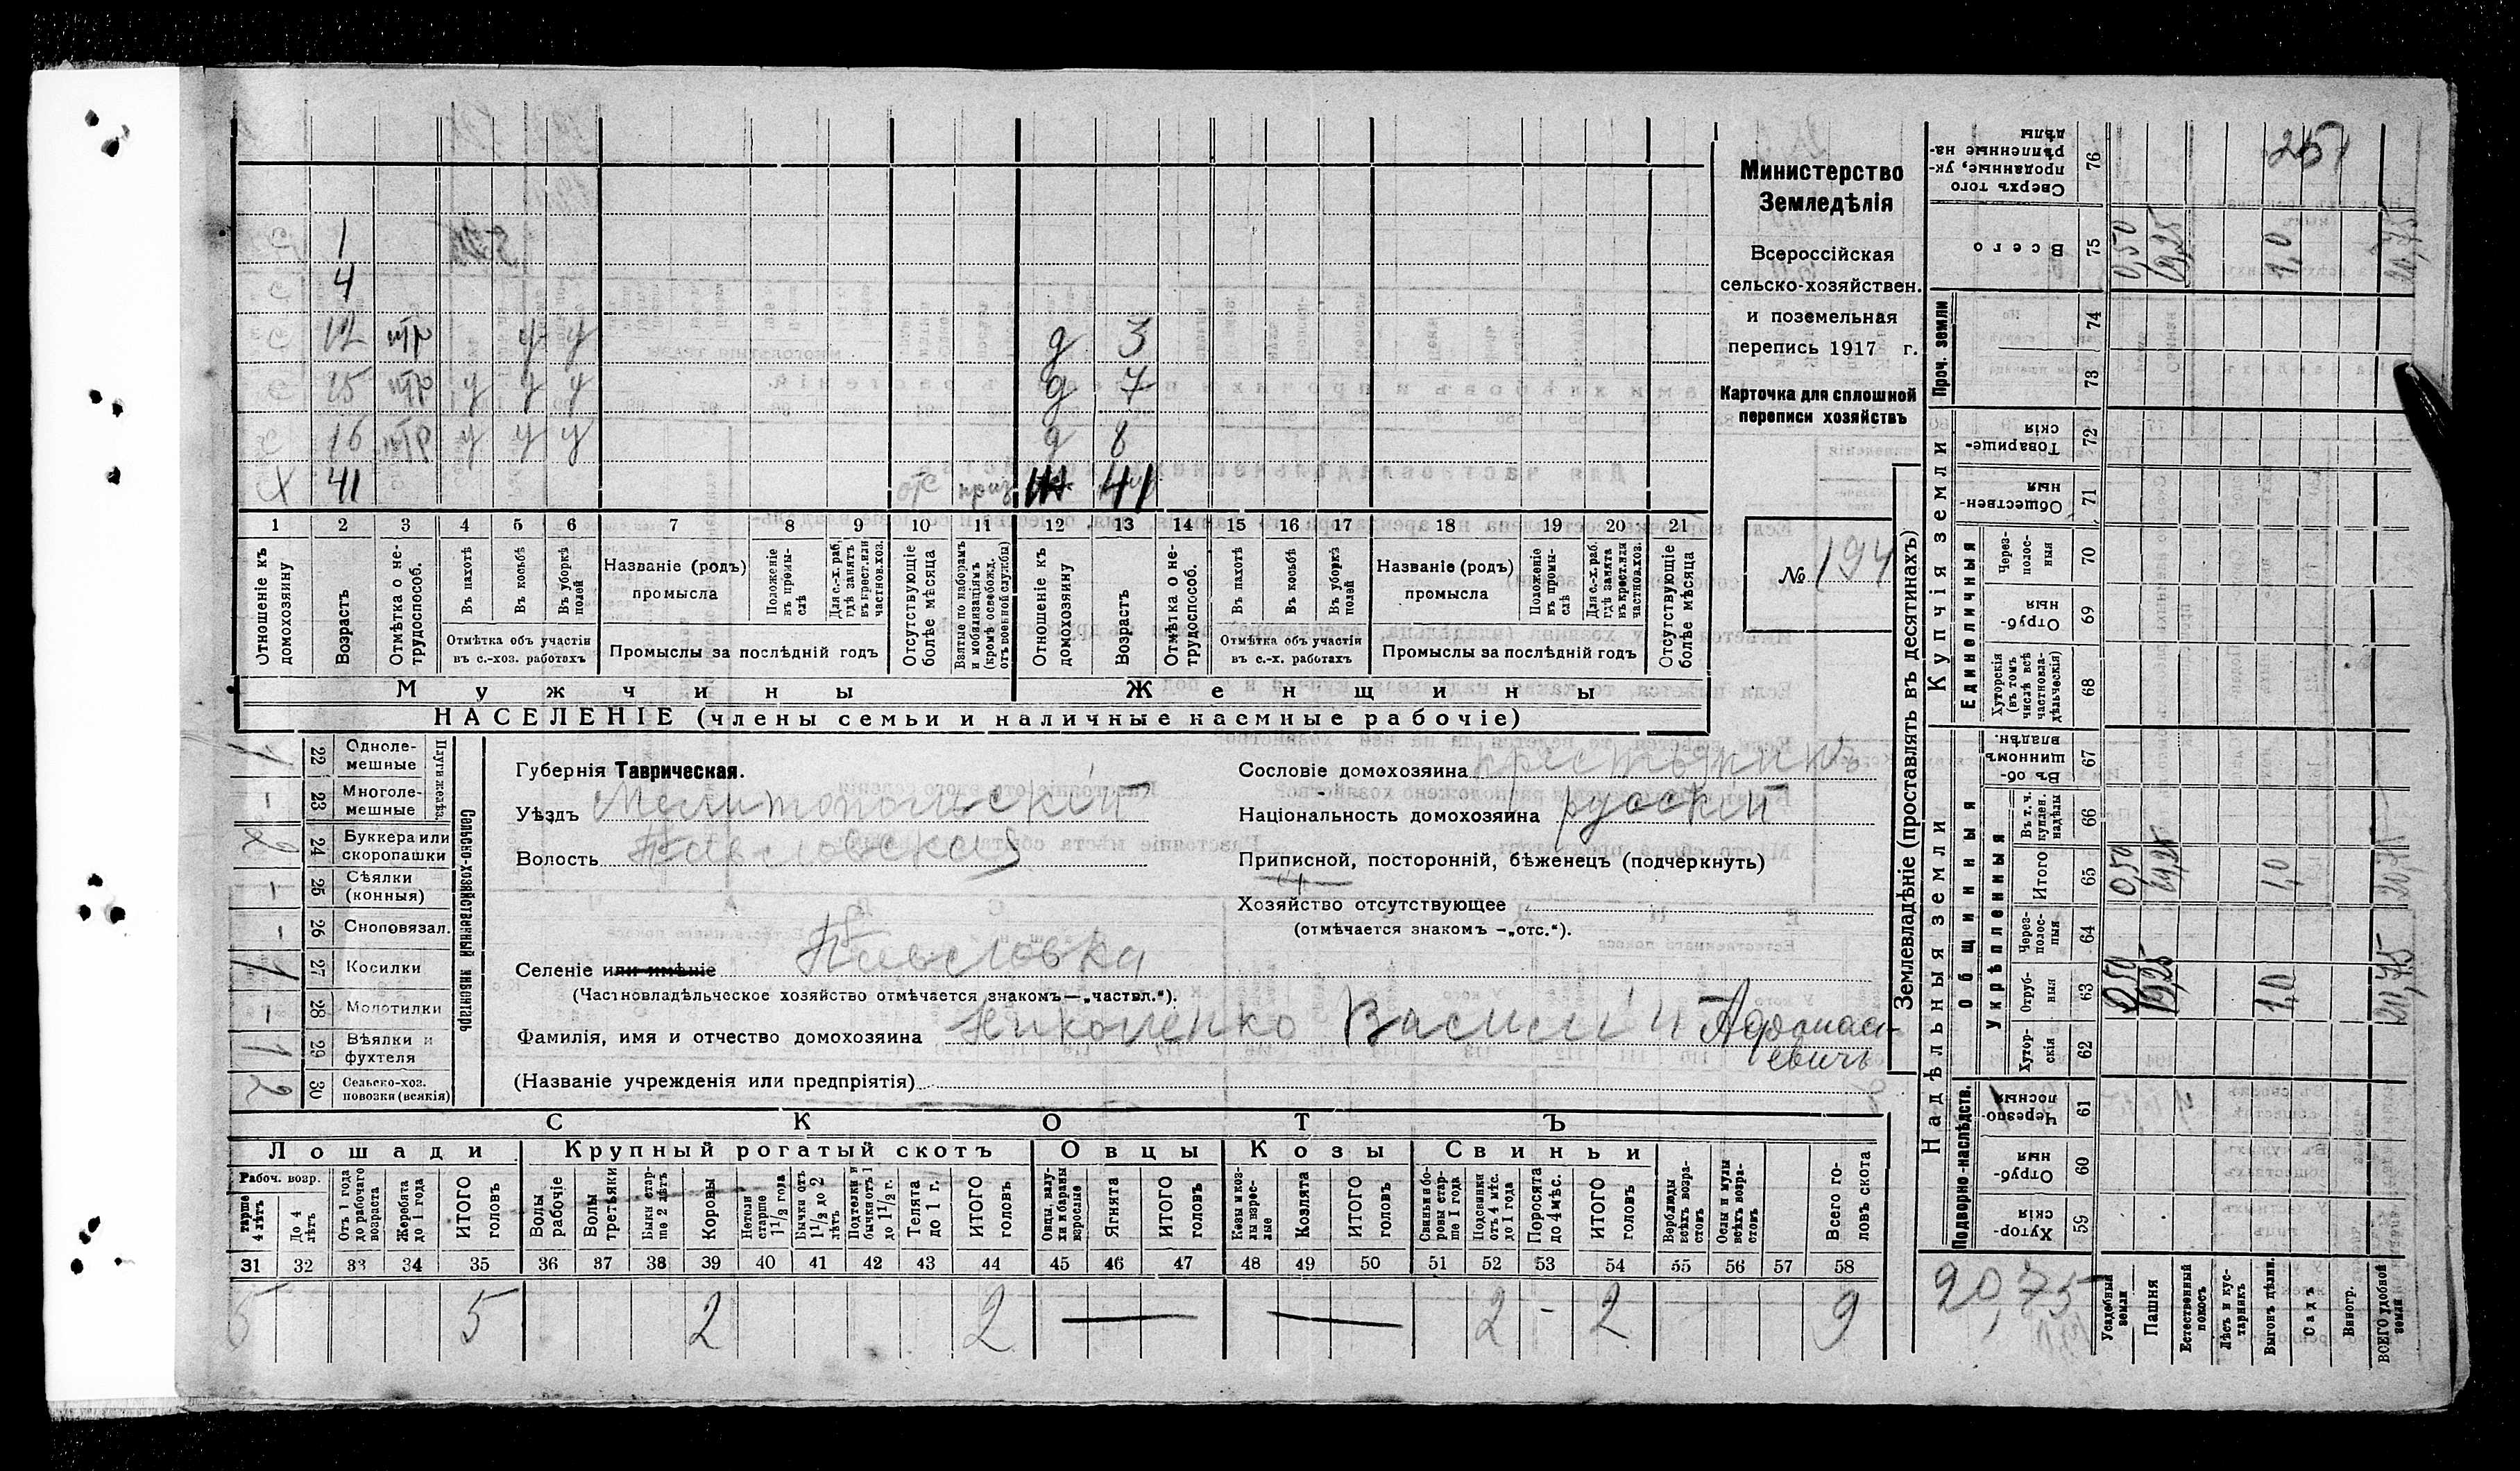 Министерство
Земледѣлія
Всероссійская
сельско-хозяйствен.
и поземельная
перепись 1917 г.
Карточка для сплошной
переписи хозяйствъ
№ 194
1
4
12 нтр у у д 3
15 нтр у у у д 7
16 нтр у у у д 8
Х 41 отс приз 41
1 2 3 4 5 6 7 8 9 10 11 12 13 14 15 16 17 18 19 20 21
Отношеніе къ домохозяину
Возрастъ
Отмѣтка о не-трудоспособ.
Въ пахотѣ
Въ косьбѣ
Въ уборкѣ полей
Отмѣтка объ участіи въ с.-хоз. работахъ
Названіе (родъ) промысла
Положеніе въ промы-слѣ
Для с.-х. раб. гдѣ занятъ въ крест. или частнов. хоз.
Промыслы за послѣдній годъ
Отсутствующіе болѣе мѣсяца
Взятые по наборамъ и мобилизаціямъ (кромѣ освобожд. отъ военной службы)
Отношеніе къ домохозяину
Возрастъ
Отмѣтка о не-трудоспособ.
Въ пахотѣ
Въ косьбѣ
Въ уборкѣ полей
Отмѣтка объ участіи въ с.-х. работахъ
Названіе (родъ) промысла
Положеніе въ промы-слѣ
Для с.-х. раб. гдѣ занята въ крест. или частнов. хоз.
Промыслы за послѣдній годъ
Отсутствующіе болѣе мѣсяца
Мужчины Женщины
НАСЕЛЕНІЕ (члены семьи и наличные наемные рабочіе)
Сельско-хозяйственный инвентарь
Плуги желѣз.
22 Одноле-мешные 1
23 Многоле-мешные -
24 Буккера или скоропашки 2
25 Сѣялки (конныя) -
26 Сноповязал. -
27 Косилки 1
28 Молотилки -
29 Вѣялки и фухтеля 1
30 Сельско-хоз. повозки (всякія) 2
Губернія Таврическая.
Уѣздъ Мелитопольскій
Волость Павловская
Селеніе или имѣніе Павловка
(Частновладѣльческое хозяйство отмѣчается знакомъ—„частвл.“).
Фамилія, имя и отчество домохозяина Николенко Василій Афонась-
евичъ
(Названіе учрежденія или предпріятія)
Сословіе домохозяина крестьянинъ
Національность домохозяина русскій
Приписной, посторонній, бѣженецъ (подчеркнуть)
Хозяйство отсутствующее
(отмѣчается знакомъ —„отс.“).
СКОТЪ
Лошади Крупный рогатый скотъ Овцы Козы Свиньи
Рабоч. возр.
тарше 4 лѣтъ
До 4 лѣтъ
Отъ 1 года до рабочаго возраста
Жеребята до 1 года
ИТОГО головъ
Волы рабочіе
Волы третьяки
Быки стар-ше 2 лѣтъ
Коровы
Нетели старше 1½ года
Бычки отъ 1½ до 2 лѣтъ
Подтелки и бычки отъ 1 до 1½ г.
Телята до 1 г.
ИТОГО головъ
Овцы, валу-хи и бараны взрослые
Ягнята
ИТОГО головъ
Козы и коз-лы взрос-лые
Козлята
ИТОГО головъ
Свиньи и бо-ровы стар-ше 1 года
Подсвинки отъ 4 мѣс. до 1 года
Поросята до 4 мѣс.
ИТОГО головъ
Верблюды всѣхъ возра-стовъ
Ослы и мулы всѣхъ возра-стовъ
Всего го-ловъ скота
31 32 33 34 35 36 37 38 39 40 41 42 43 44 45 46 47 48 49 50 51 52 53 54 55 56 57 58
5 5 2 2 — — 2 - 2 9
Землевладѣніе (проставлять въ десятинахъ)
Надѣльныя земли Купчія земли Проч. земли
Подворно-наслѣдств.
Общинныя
Укрѣпленныя
Единоличныя
59 Хутор-скія
60 Отруб-ныя
61 Черезпо-лосныя
62 Хутор-скія
63 Отруб-ныя 0,50 19,25 1,0 20,75
64 Через-полос-ныя
65 Итого 0,50 19,25 1,0 20,75
66 Въ т. ч. куплен. надѣлы
67 Въ об-щинномъ владѣн.
68 Хуторскія (въ томъ числѣ всѣ частновла-дѣльческія)
69 Отруб-ныя
70 Через-полос-ныя
71 Обществен-ныя
72 Товарище-скія
73
74
75 Всего 0,50 19,25 1,0 20,75
76 Сверхъ того проданные, ук-рѣпленные на-дѣлы
251
20,75
Усадебныя земли
Пашня
Естественный покосъ
Лѣсъ и кус-тарникъ
Выгонъ цѣлин.
Садъ
Виногр.
ВСЕГО удобной земли